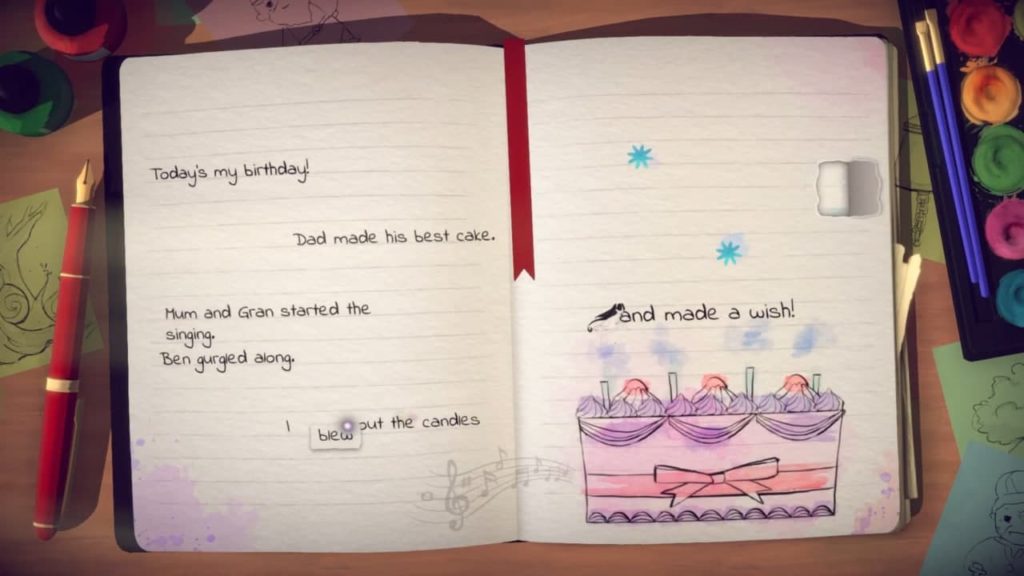 Today's my birthday!
Dad made his best cake.
Mum and Gran started the
singing.
Ben gurgled along.
I blew out the candles
and made a wish!